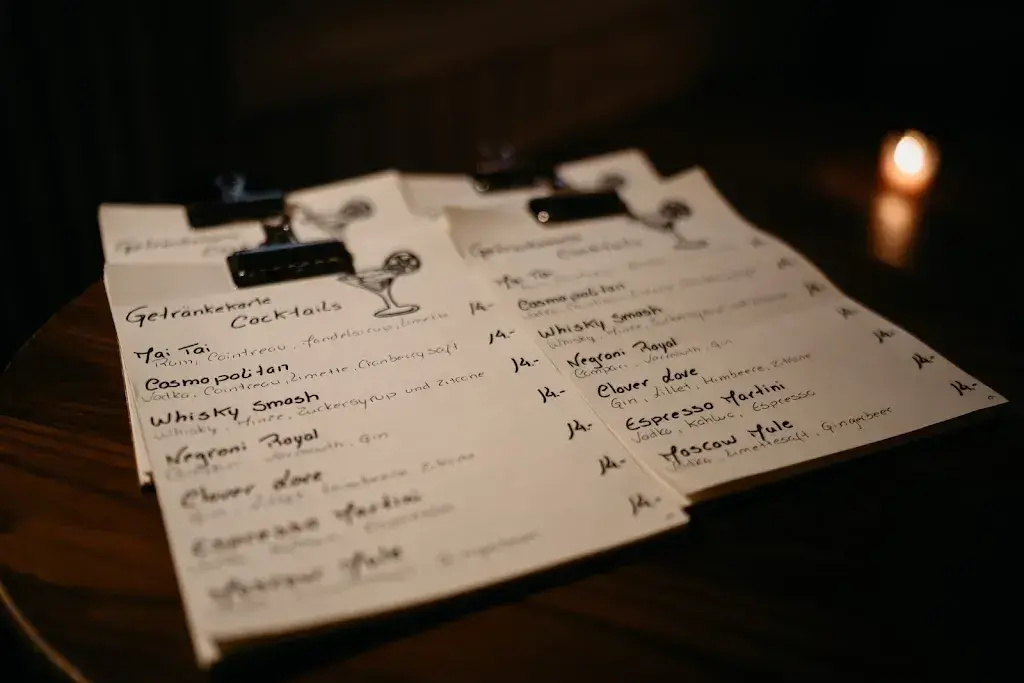 Getränkekarte
Cocktails
Mai Tai 14.-
Rum, Cointreau, Mandelsirup, Limette
Cosmopolitan 14.-
Vodka, Cointreau, Limette, Cranberrysaft
Whisky Smash 14.-
Whisky, Minze, Zuckersirup und Zitrone
Negroni Royal 14.-
Campari, Vermouth, Gin
Clover Love 14.-
Gin, Lillet, Himbeere, Zitrone
Espresso Martini 14.-
Vodka, Kahlua, Espresso
Moscow Mule 14.-
Gingerbeer
Getränkekarte
Cocktails
Mai Tai 14.-
Cosmopolitan 14.-
Vodka, Limette
Whisky Smash 14.-
Whisky, Minze, Zuckersirup und Zitrone
Negroni Royal 14.-
Campari, Vermouth, Gin
Clover Love 14.-
Gin, Lillet, Himbeere, Zitrone
Espresso Martini 14.-
Vodka, Kahlua, Espresso
Moscow Mule 14.-
Vodka, Limettesaft, Gingerbeer
Getränkekarte